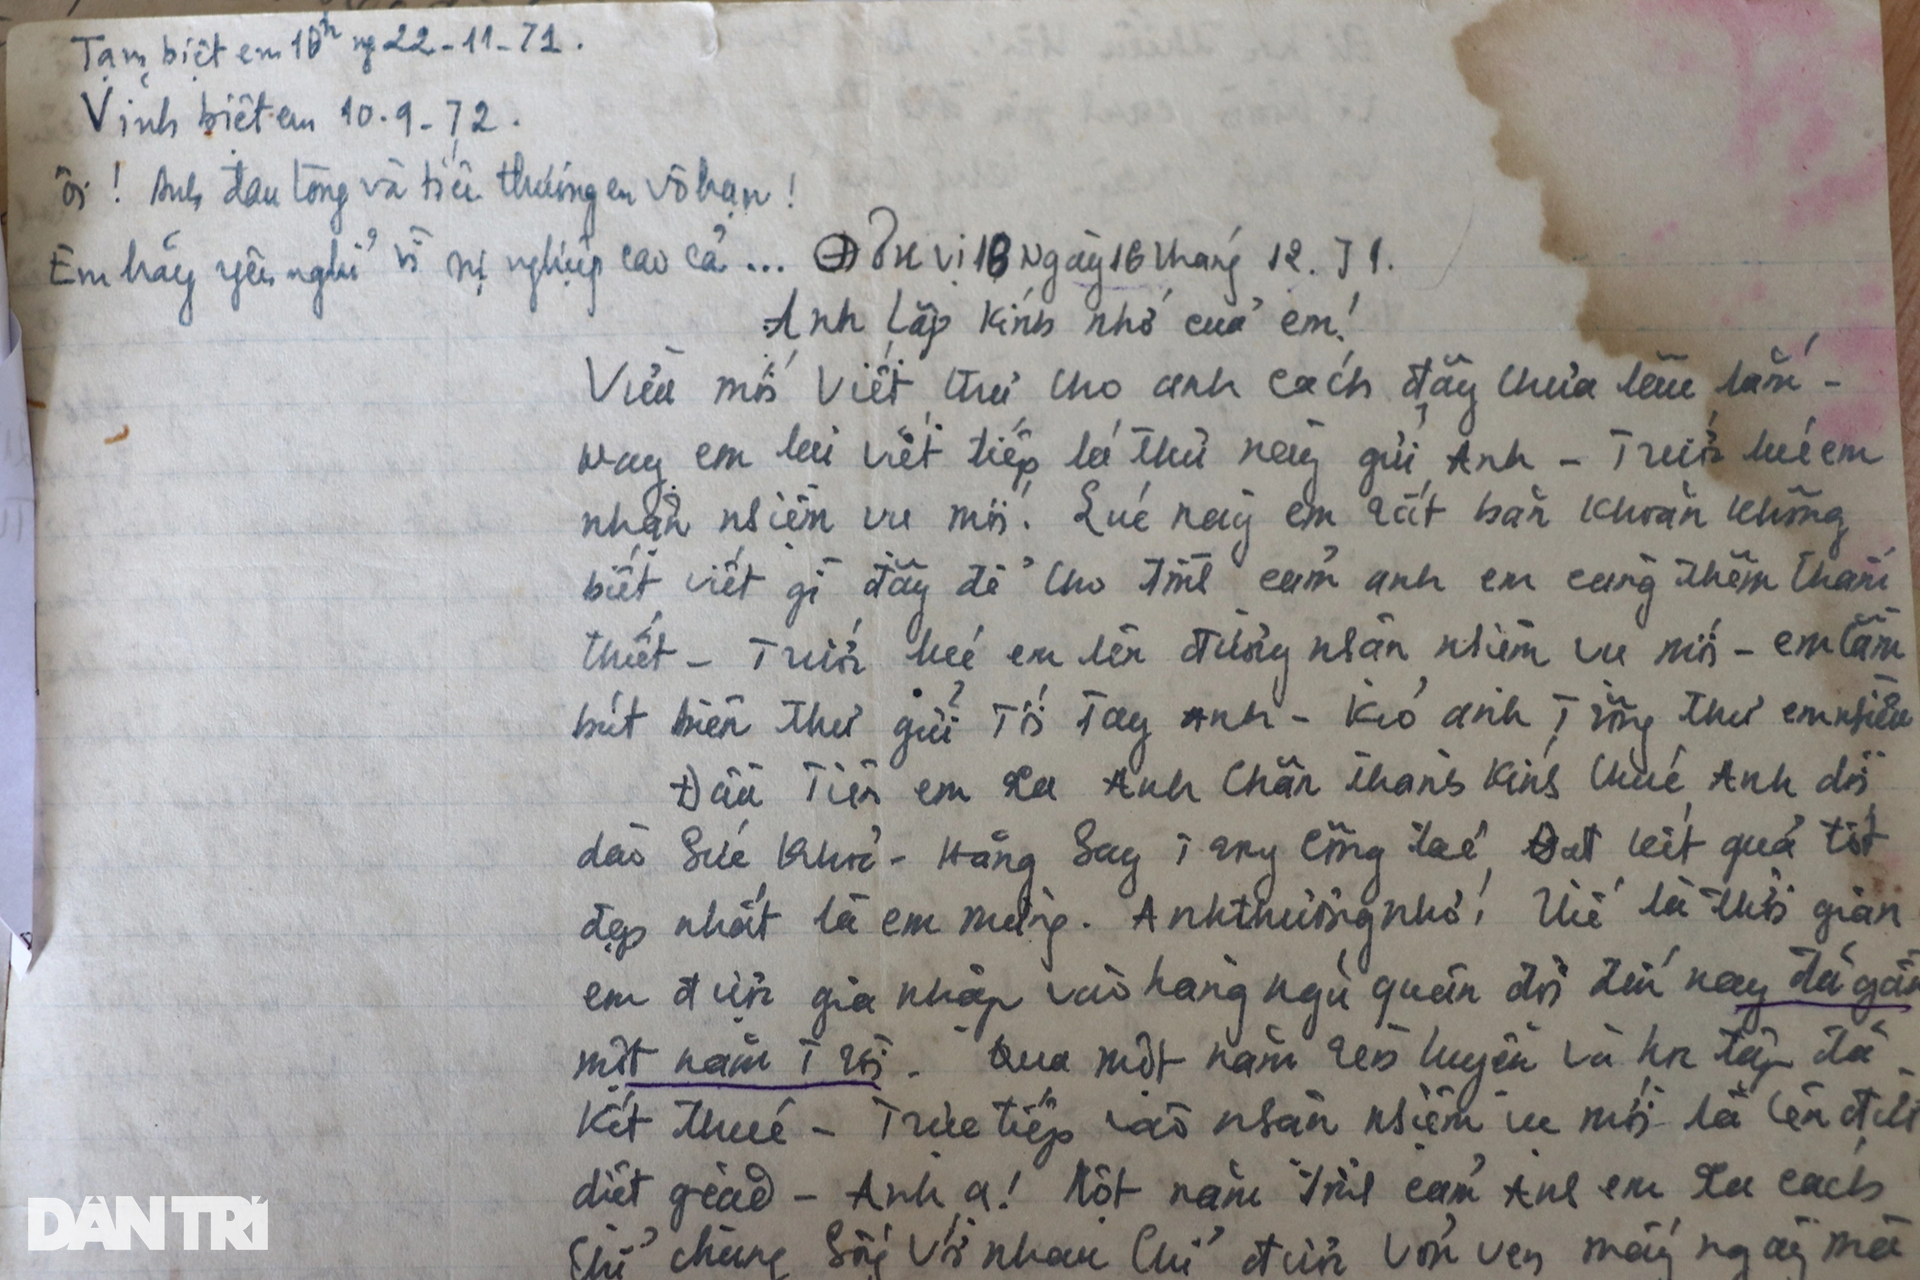 Tạm biệt em 10h ng 22-11-71.
Vĩnh biệt em 10.9-72.
Ôi! Anh đau lòng và tiếc thương em vô hạn!
Em hãy yên nghỉ vì sự nghiệp cao cả...
Đơn vị 18 Ngày 16 tháng 12.71.
Anh Lập kính nhớ của em!
Vừa mới viết thư cho anh cách đây chưa lâu lắm -
Nay em lại viết tiếp lá thư này gửi Anh - Trước lúc em
nhận nhiệm vụ mới. Lúc này em rất băn khoăn không
biết viết gì đây để cho tình cảm anh em càng thêm thắm
thiết - Trước lúc em lên đường nhận nhiệm vụ mới - em cầm
bút biên thư gửi tới tay Anh - Kìa anh trông thư em nhiều
Đầu tiên em xa Anh chân thành kính chúc Anh dồi
dào sức khoẻ - Hăng say trong công tác Đạt kết quả tốt
đẹp nhất là em mừng. Anh thương nhớ! Thế là thời gian
em được gia nhập vào hàng ngũ quân đội đến nay đã gần
một năm trời. Qua một năm rèn luyện và học tập đã
kết thúc - Trực tiếp vào nhận nhiệm vụ mới là lên đường
diệt giặc - Anh ạ! Một năm tình cảm Anh em xa cách
chỉ chung sống với nhau chỉ được vỏn vẹn mấy ngày mà
DÂN TRÍ